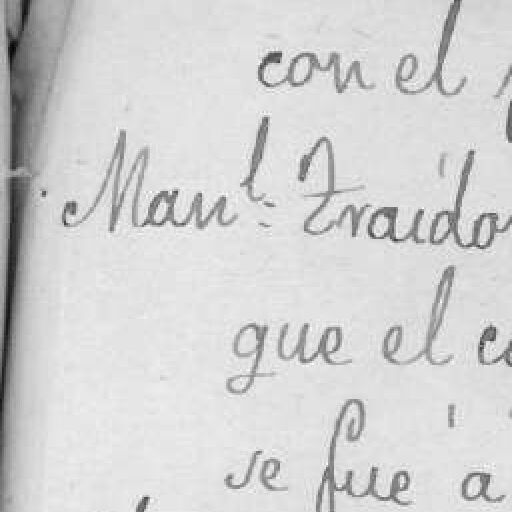 con el
Man.l Traido
que el c
se fué á